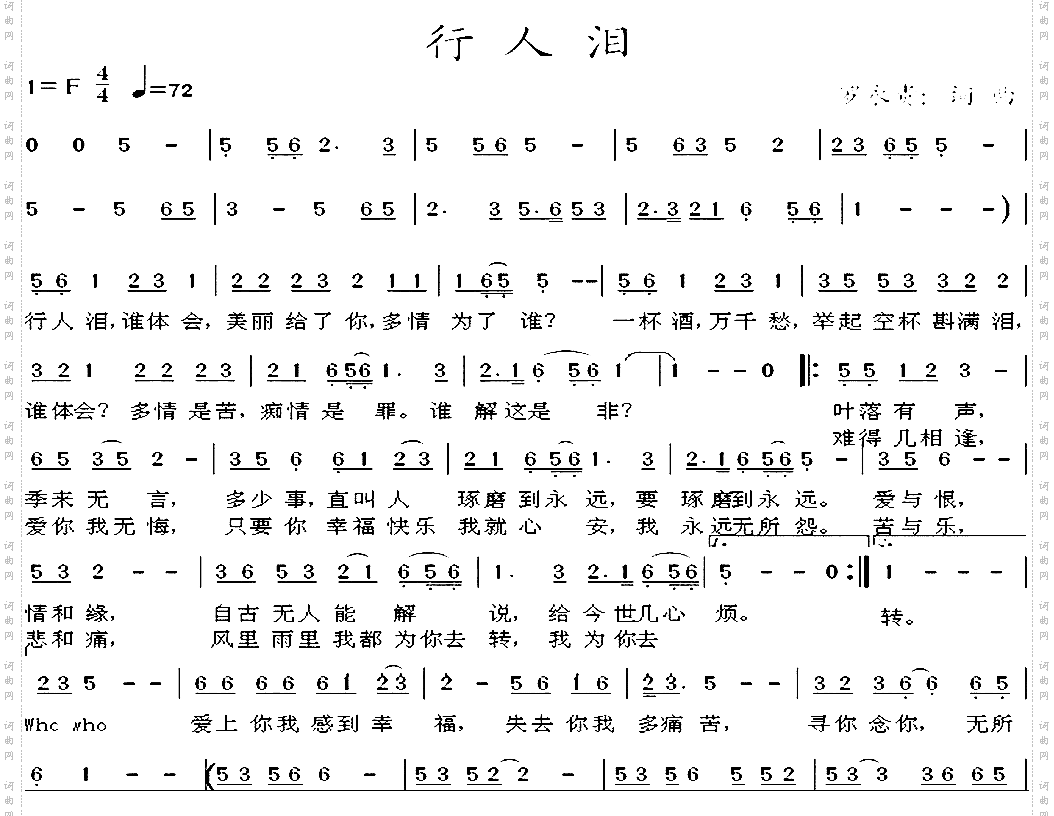 行人泪
1=F 4/4 ♩=72
词曲
0 0 5 - | 5 56 2. 3 | 5 56 5 - | 5 63 5 2 | 23 65 5 - |
5 - 5 65 | 3 - 5 65 | 2. 3 5.6 53 | 2.3 21 6 56 | 1 - - - ) |
56 1 23 1 | 22 23 2 11 | 1 65 5 -- | 56 1 23 1 | 35 53 32 2 |
行人泪,谁体会,美丽给了你,多情为了谁? 一杯酒,万千愁,举起空杯斟满泪,
32 1 22 23 | 21 656 1. 3 | 2.1 6 56 1 | 1 - - 0 ‖: 55 12 3 - |
谁体会? 多情是苦,痴情是罪。谁解这是非? 叶落有声,
难得几相逢,
65 35 2 - | 35 6 61 23 | 21 6 565 1. 3 | 2.1 6 565 5 - | 35 6 - - |
季来无言, 多少事,直叫人 琢磨到永远,要 琢磨到永远。 爱与恨,
爱你我无悔, 只要你幸福快乐 我就心安,我 永远无所怨。 苦与乐,
53 2 - - | 36 53 21 6 56 | 1. 3 2.1 6 56 | 5 - - 0 :‖ 1 - - -
情和缘, 自古无人能解 说,给今世几心烦。 转。
悲和痛, 风里雨里我都为你去转,我为你去
23 5 - - | 66 66 61 23 | 2 - 56 16 | 23. 5 - - | 32 36 6 65 |
Who who 爱上你我感到幸福, 失去你我多痛苦, 寻你念你, 无所
6 1 - - | (53 56 6 - | 53 52 2 - | 53 56 52 2 | 53 3 36 65 |